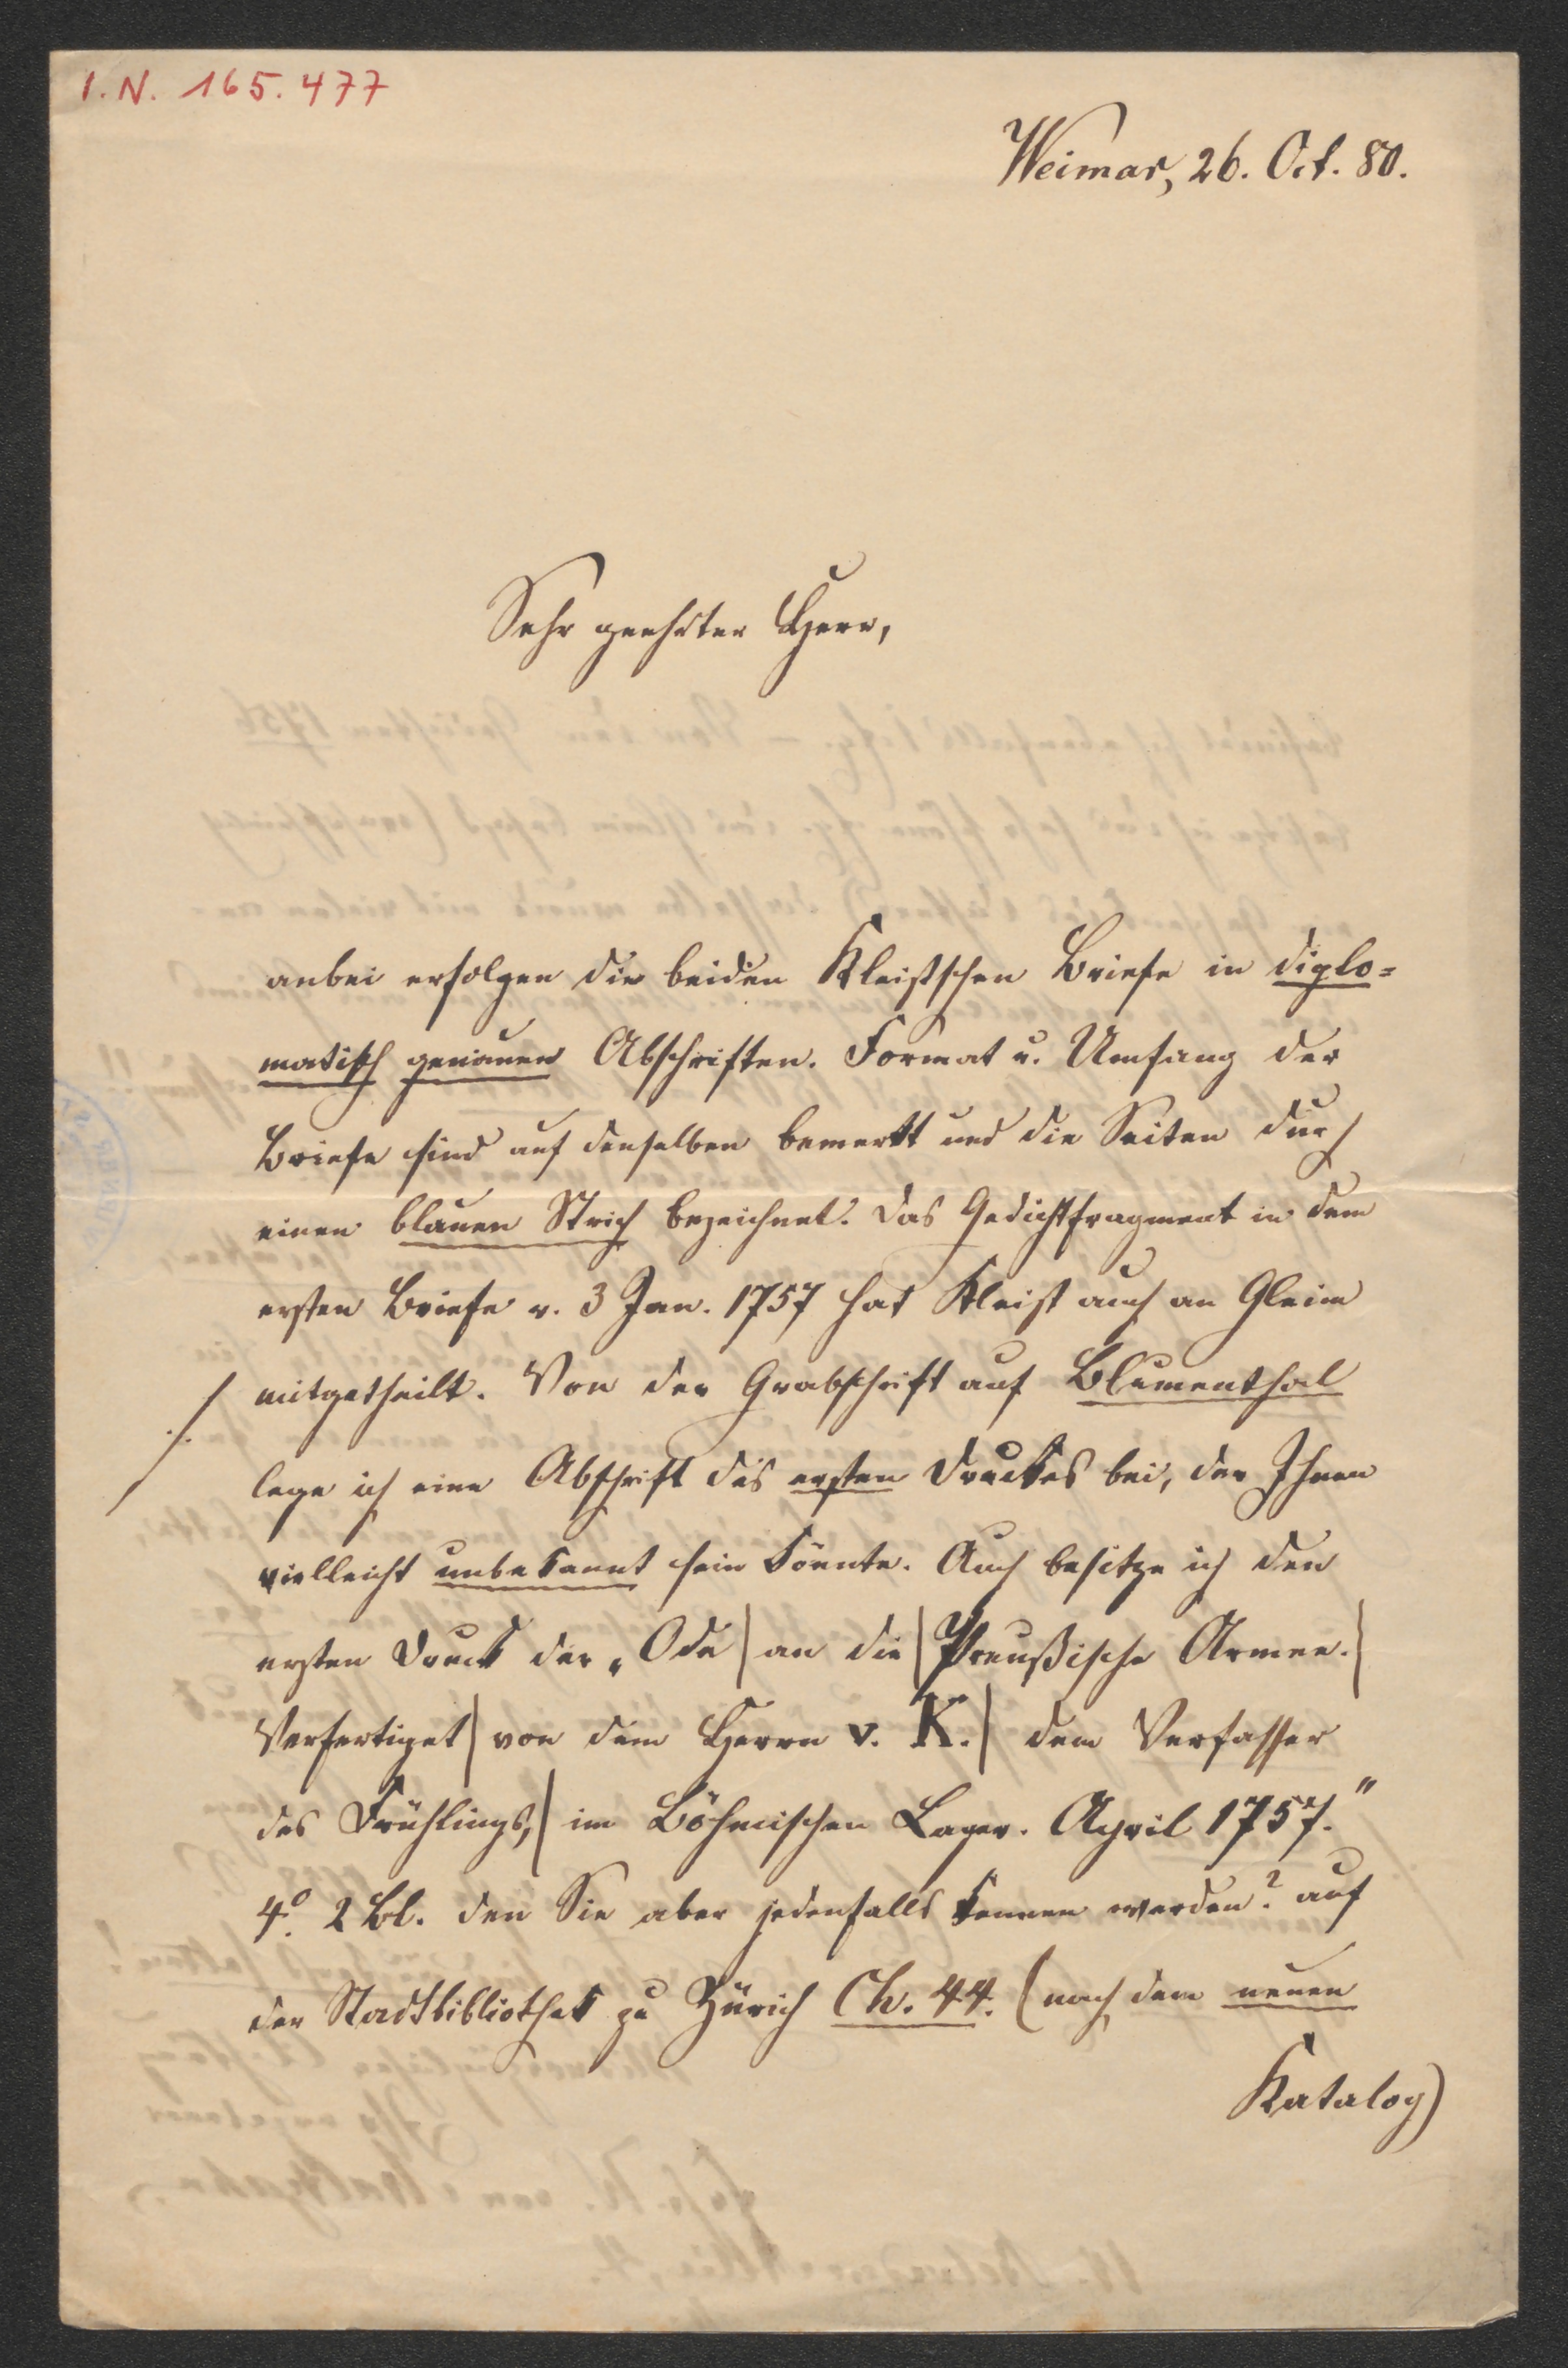 I.N. 165.477
Weimar, 26. Oct. 80.
Sehr geehrter Herr,
anbei erfolgen die beiden Kleistschen Briefe in diplo=
matisch genauen Abschriften. Format u. Umfang der
Briefe sind auf denselben bemerkt und die Seiten durch
einen blauen Strich bezeichnet. Das Gedichtfragment in dem
ersten Briefe v. 3 Jan. 1757 hat Kleist auch an Gleim
mitgetheilt. Von der Grabschrift auf Blumenthal
lege ich eine Abschrift des ersten Druckes bei, der Ihnen
vielleicht unbekannt sein könnte. Auch besitze ich den
ersten Druck der „Ode | an die | Preußische Armee. |
Verfertiget | von dem Herrn v. K. | dem Verfasser
des Frühlings, | im Böhmischen Lager. April 1757."
4º. 2 Bl. den Sie aber jedenfalls kennen werden? auf
der Stadtbibliothek zu Zürich Ch. 44. (nach dem neuen
Katalog)